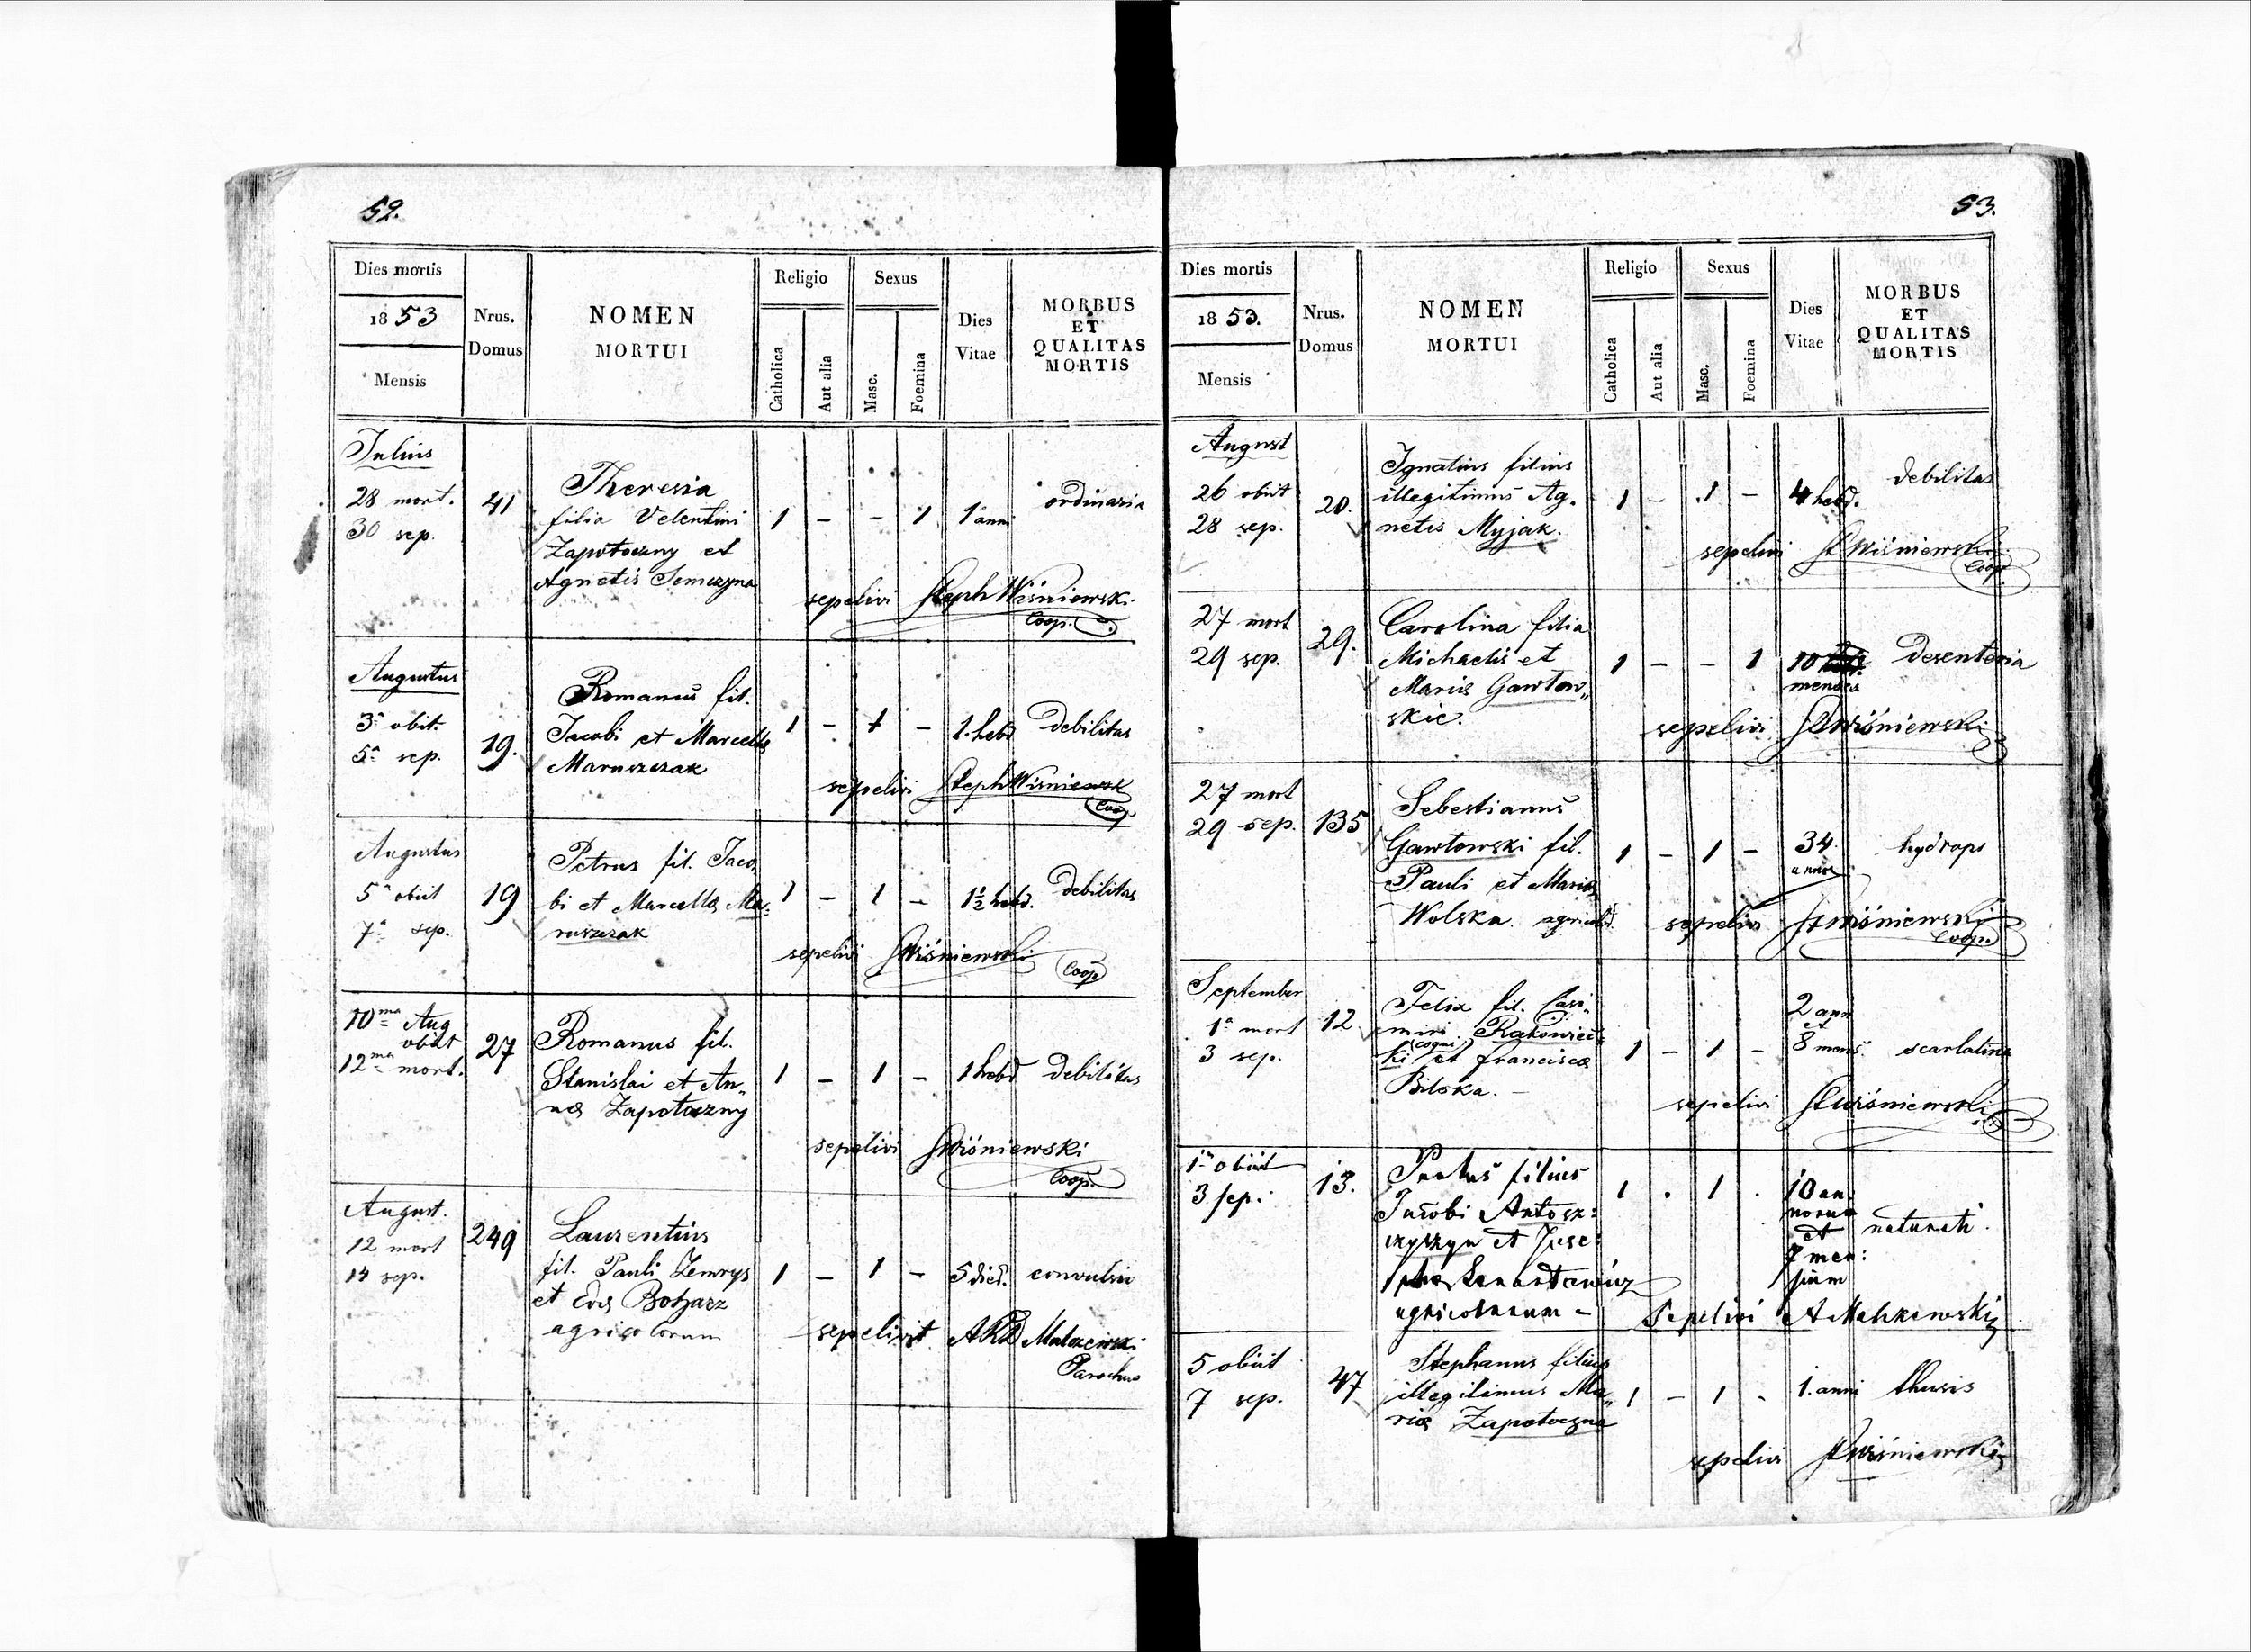 52.
Dies mortis
1853
Mensis
Nrus.
Domus
NOMEN
MORTUI
Religio
Catholica
Aut alia
Sexus
Masc.
Foemina
Dies
Vitae
MORBUS
ET
QUALITAS
MORTIS
Julius
28 mort.
30 sep.
41
Theresia
filia Velentini
Zapotoczny et
Agnetis Semczyna
1 - - 1 1 anni ordinaria
sepelivi Steph Wiśniewski
Coop.
Augustus
3ª obit.
5ª sep.
19.
Romanus fil.
Jacobi et Marcellæ
Maruszczak
1 - 1 - 1. hebd debilitas
sepelivi Steph Wiśniewsk
Coop
Augustus
5ª obiit
7ª sep.
19
Petrus fil. Jaco,
bi et Marcellæ Ma:
ruszczak
1 - 1 - 1½ hebd. debilitas
sepelivi StWiśniewski
Coop
10ma Aug
obiit
12ma mort.
27
Romanus fil.
Stanislai et An„
næ Zapotoczny
1 - 1 - 1 hebd debilitas
sepelivi StWiśniewski
Coop.
August.
12 mort
14 sep.
249
Laurentius
fil. Pauli Zemrys
et Evæ
agricolarum
1 - 1 - 5 dies. convulsio
sepelivit Malczewski
Parochus
53.
Dies mortis
1853.
Mensis
Nrus.
Domus
NOMEN
MORTUI
Religio
Catholica
Aut alia
Sexus
Masc.
Foemina
Dies
Vitae
MORBUS
ET
QUALITAS
MORTIS
August
26 obiit
28 sep.
20.
Ignatius filius
illegitimus Ag.
netis Myjak.
1 - 1 - 4 hebd. debilitas
sepelivi St Wiśniewski
Coop
27 mort
29 sep.
29.
Carolina filia
Michaelis et
Mariæ Gawłow„
skie.
1 - - 1 10
menses
desenteria
sepelivi StWiśniewski
27 mort
29 sep.
135
Sebestianus
Gawłowski fil.
Pauli et Mariæ
Wolska.
1 - 1 - 34.
annor
hydrops
sepelivi StWiśniewski
Coop.
September
1ª mort
3 sep.
12
Felix fil. Casi:
miri Rakowiec:
(cogni)
ki et franciscæ
Bilska. -
1 - 1 - 2 ann
et
8 mens. scarlatina
sepelivi StWiśniewski
1ª obiit
3 sep.
13.
filius
Jacobi Antosz:
czyszyn et Jose:
agricolarum -
1 . 1 . 10 an:
norum
et
7 men:
sium
naturali.
Sepelivi
5 obiit
7 sep.
47
Stephanus filius
illegitimus Ma„
riæ Zapotoczna
1 - 1 - 1. anni thusis
sepelivi StWiśniewski